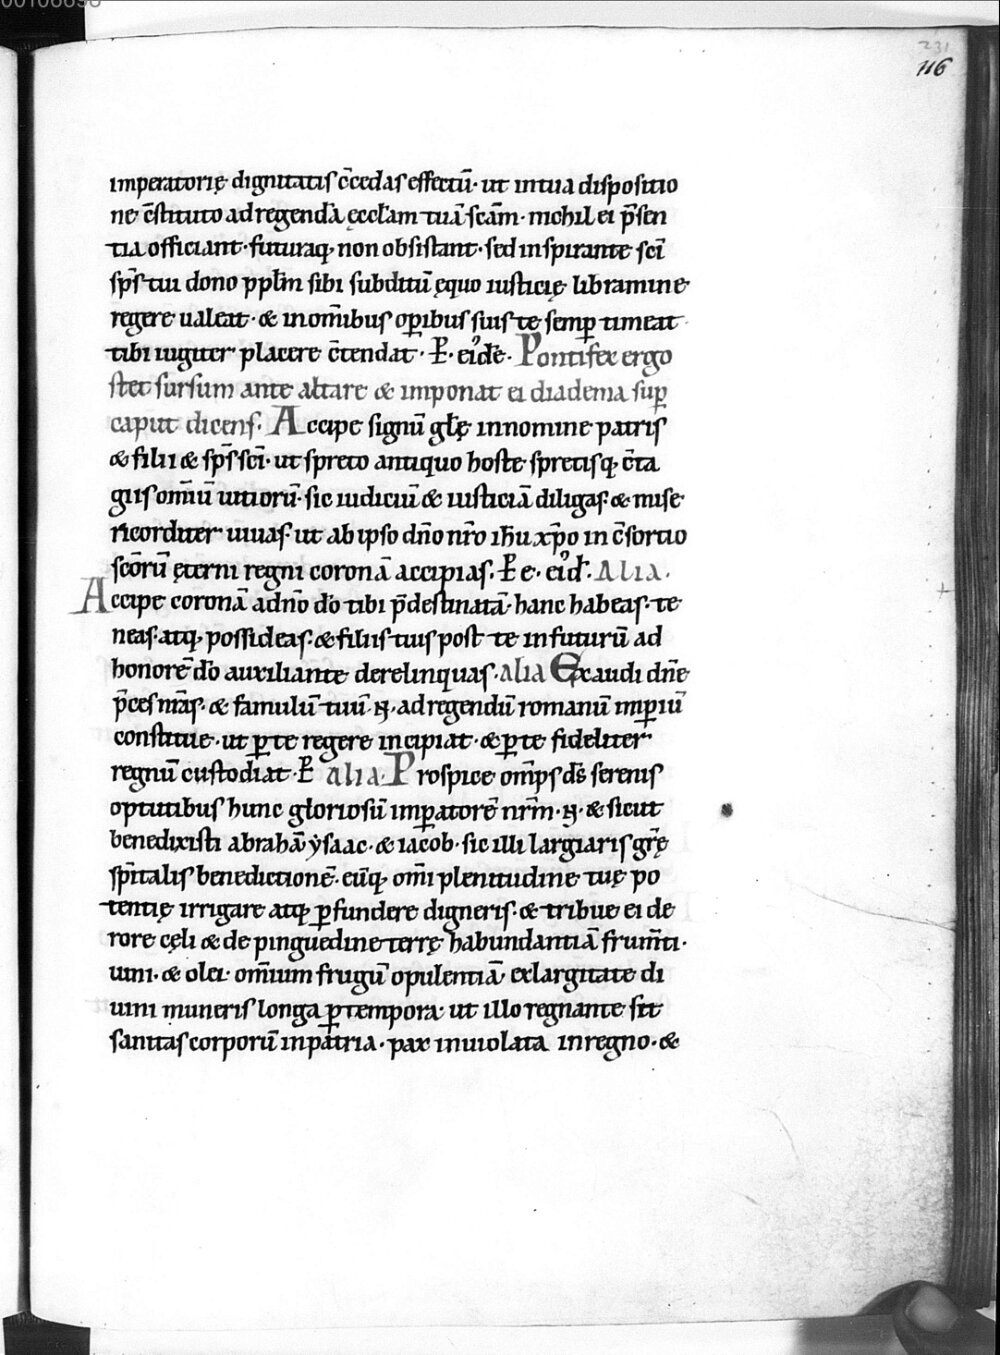 00106696
231
116
imperatorię dignitatis c̄cedas effectū· ut in tua dispositio
ne c̄stituto ad regendā ęccl̄am tuā sc̄am· nichil ei p̄sen
tia officiant· futuraq; non obsistant· sed inspirante sc̄i
sp̄s tui dono pp̄lm sibi subditū ęquo iusticię libramine
regere ualeat· & in om̄ibus op̄ibus suis te semp̄ timeat·
tibi iugiter placere c̄tendat· P̄· ei᷒dē· Pontifex ergo
stet sursum ante altare & imponat ei diadema sup̄
caput dicens· Accipe signū gl̄ę in nomine patris
& filii & sp̄s sc̄i· ut spreto antiquo hoste spretisq; c̄ta
giis om̄iū uitiorū· sic iudiciū & iusticiā diligas· & mise
ricorditer uiuas· ut ab ipso dn̄o nr̄o ih̄u xp̄o in c̄sortio
sc̄orū ęterni regni coronā accipias· P̄ e· ei᷒d̄· Alia·
Accipe coronā a dn̄o dō tibi p̄destinatā· hanc habeas· te
neas· atq; possideas· & filiis tuis post te in futurū ad
honorē dō auxiliante derelinquas· alia Exaudi dn̄e
p̄ces nr̄as· & famulū tuū· N· ad regendū romanū imp̄iū
constitue· ut p̄ te regere incipiat· & p̄ te fideliter
regnū custodiat· P̄ alia· Prospice om̄ps d̄s serenis
optutibus hunc gloriosū imp̄atorē nr̄m· N· & sicut
benedixisti abrahā ẏsaac· & iacob· sic illi largiaris gr̄ę
sp̄italis benedictionē· eūq; om̄i plenitudine tuę po
tentię irrigare atq; p̄fundere digneris· & tribue ei de
rore cęli & de pinguedine terrę habundantiā frum̄ti·
uini· & olei· om̄ium frugū opulentiā· ex largitate di
uini muneris longa p̄ tempora· ut illo regnante sit
sanitas corporū in patria· pax inuiolata in regno· &